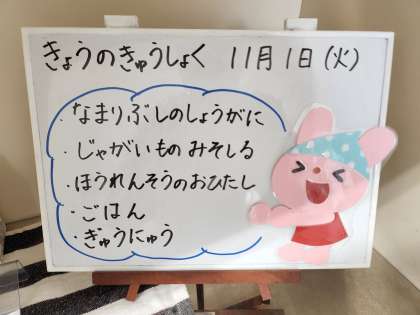 きょうのきゅうしょく 11月1日(火)
・なまりぶしのしょうがに
・じゃがいものみそしる
・ほうれんそうのおひたし
・ごはん
・ぎゅうにゅう